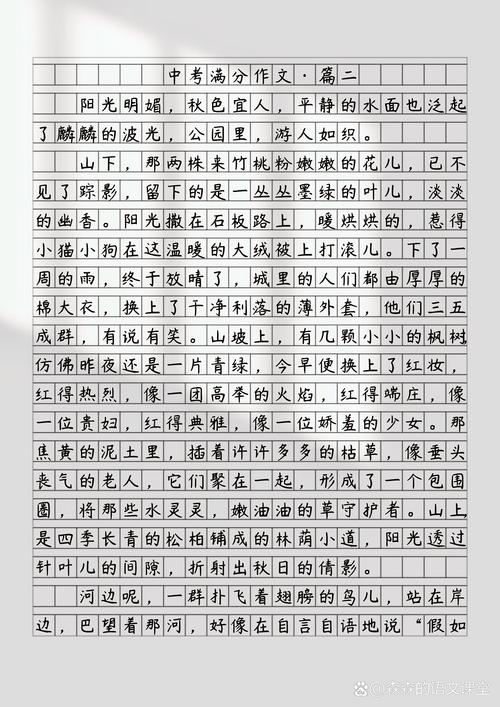 中考满分作文·篇二
阳光明媚，秋色宜人，平静的水面也泛起
了麟麟的波光，公园里，游人如织。
山下，那两株来竹桃粉嫩嫩的花儿，已不
见了踪影，留下的是一丛丛墨绿的叶儿，淡淡
的幽香。阳光撒在石板路上，暖烘烘的，惹得
小猫小狗在这温暖的大绒被上打滚儿。下了一
周的雨，终于放晴了，城里的人们都由厚厚的
棉大衣，换上了干净利落的薄外套，他们三五
成群，有说有笑。山坡上，有几颗小小的枫树
仿佛昨夜还是一片青绿，今早便换上了红妆，
红得热烈，像一团高举的火焰，红得端庄，像
一位贵妇，红得典雅，像一位娇羞的少女。那
焦黄的泥土里，插着许许多多的枯草，像垂头
丧气的老人，它们聚在一起，形成了一个包围
圈，将那些水灵灵，嫩油油的草守护者。山上，
是四季长青的松柏铺成的林荫小道，阳光透过
针叶儿的间隙，折射出秋日的倩影。
河边呢，一群扑飞着翅膀的鸟儿，站在岸
边，巴望着那河，好像在自言自语地说“假如
森森的语文课堂